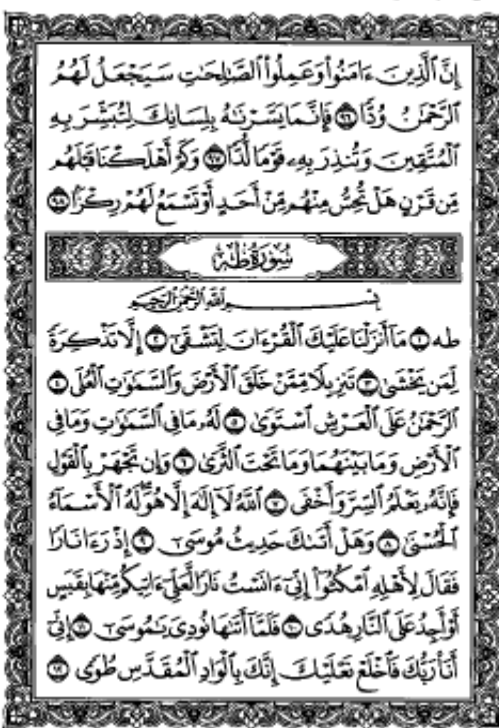 إِنَّ ٱلَّذِينَ ءَامَنُوا۟ وَعَمِلُوا۟ ٱلصَّـٰلِحَـٰتِ سَيَجْعَلُ لَهُمُ
ٱلرَّحْمَـٰنُ وُدًّا ٩٦ فَإِنَّمَا يَسَّرْنَـٰهُ بِلِسَانِكَ لِتُبَشِّرَ بِهِ
ٱلْمُتَّقِينَ وَتُنذِرَ بِهِۦ قَوْمًا لُّدًّا ٩٧ وَكَمْ أَهْلَكْنَا قَبْلَهُم
مِّن قَرْنٍ هَلْ تُحِسُّ مِنْهُم مِّنْ أَحَدٍ أَوْ تَسْمَعُ لَهُمْ رِكْزًۢا ٩٨
سُورَةُ طه
بِسْمِ ٱللَّهِ ٱلرَّحْمَـٰنِ ٱلرَّحِيمِ
طه ١ مَآ أَنزَلْنَا عَلَيْكَ ٱلْقُرْءَانَ لِتَشْقَىٰٓ ٢ إِلَّا تَذْكِرَةً
لِّمَن يَخْشَىٰ ٣ تَنزِيلًا مِّمَّنْ خَلَقَ ٱلْأَرْضَ وَٱلسَّمَـٰوَٰتِ ٱلْعُلَى ٤
ٱلرَّحْمَـٰنُ عَلَى ٱلْعَرْشِ ٱسْتَوَىٰ ٥ لَهُۥ مَا فِى ٱلسَّمَـٰوَٰتِ وَمَا فِى
ٱلْأَرْضِ وَمَا بَيْنَهُمَا وَمَا تَحْتَ ٱلثَّرَىٰ ٦ وَإِن تَجْهَرْ بِٱلْقَوْلِ
فَإِنَّهُۥ يَعْلَمُ ٱلسِّرَّ وَأَخْفَى ٧ ٱللَّهُ لَآ إِلَـٰهَ إِلَّا هُوَ لَهُ ٱلْأَسْمَآءُ
ٱلْحُسْنَىٰ ٨ وَهَلْ أَتَىٰكَ حَدِيثُ مُوسَىٰٓ ٩ إِذْ رَءَا نَارًا
فَقَالَ لِأَهْلِهِ ٱمْكُثُوٓا۟ إِنِّىٓ ءَانَسْتُ نَارًا لَّعَلِّىٓ ءَاتِيكُم مِّنْهَا بِقَبَسٍ
أَوْ أَجِدُ عَلَى ٱلنَّارِ هُدًى ١٠ فَلَمَّآ أَتَىٰهَا نُودِىَ يَـٰمُوسَىٰٓ ١١ إِنِّىٓ
أَنَا۠ رَبُّكَ فَٱخْلَعْ نَعْلَيْكَ إِنَّكَ بِٱلْوَادِ ٱلْمُقَدَّسِ طُوًى ١٢